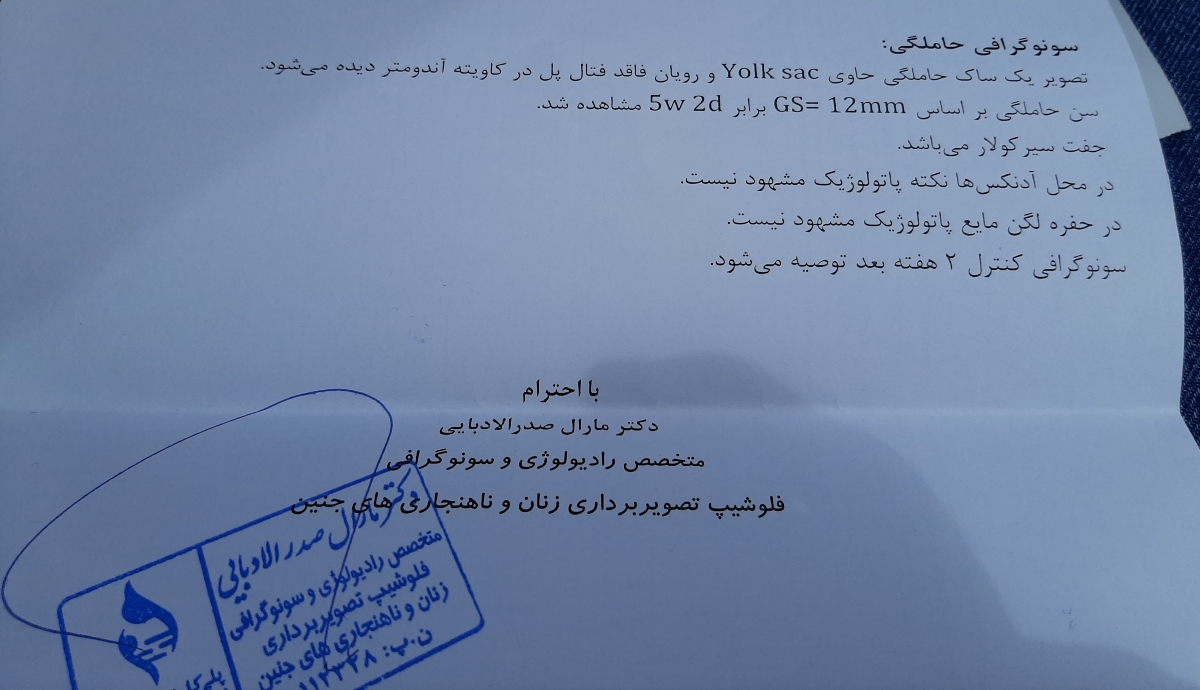 سونوگرافی حاملگی:
تصویر یک ساک حاملگی حاوی Yolk sac و رویان فاقد فتال پل در کاویته آندومتر دیده می‌شود.
سن حاملگی بر اساس GS= 12mm برابر 5w 2d مشاهده شد.
جفت سیرکولار می‌باشد.
در محل آدنکس‌ها نکته پاتولوژیک مشهود نیست.
در حفره لگن مایع پاتولوژیک مشهود نیست.
سونوگرافی کنترل ۲ هفته بعد توصیه می‌شود.
با احترام
دکتر مارال صدرالادبایی
متخصص رادیولوژی و سونوگرافی
فلوشیپ تصویربرداری زنان و ناهنجاری های جنین
دکتر مارال صدرالادبایی
متخصص رادیولوژی و سونوگرافی
فلوشیپ تصویربرداری
زنان و ناهنجاری های جنین
ن.پ: